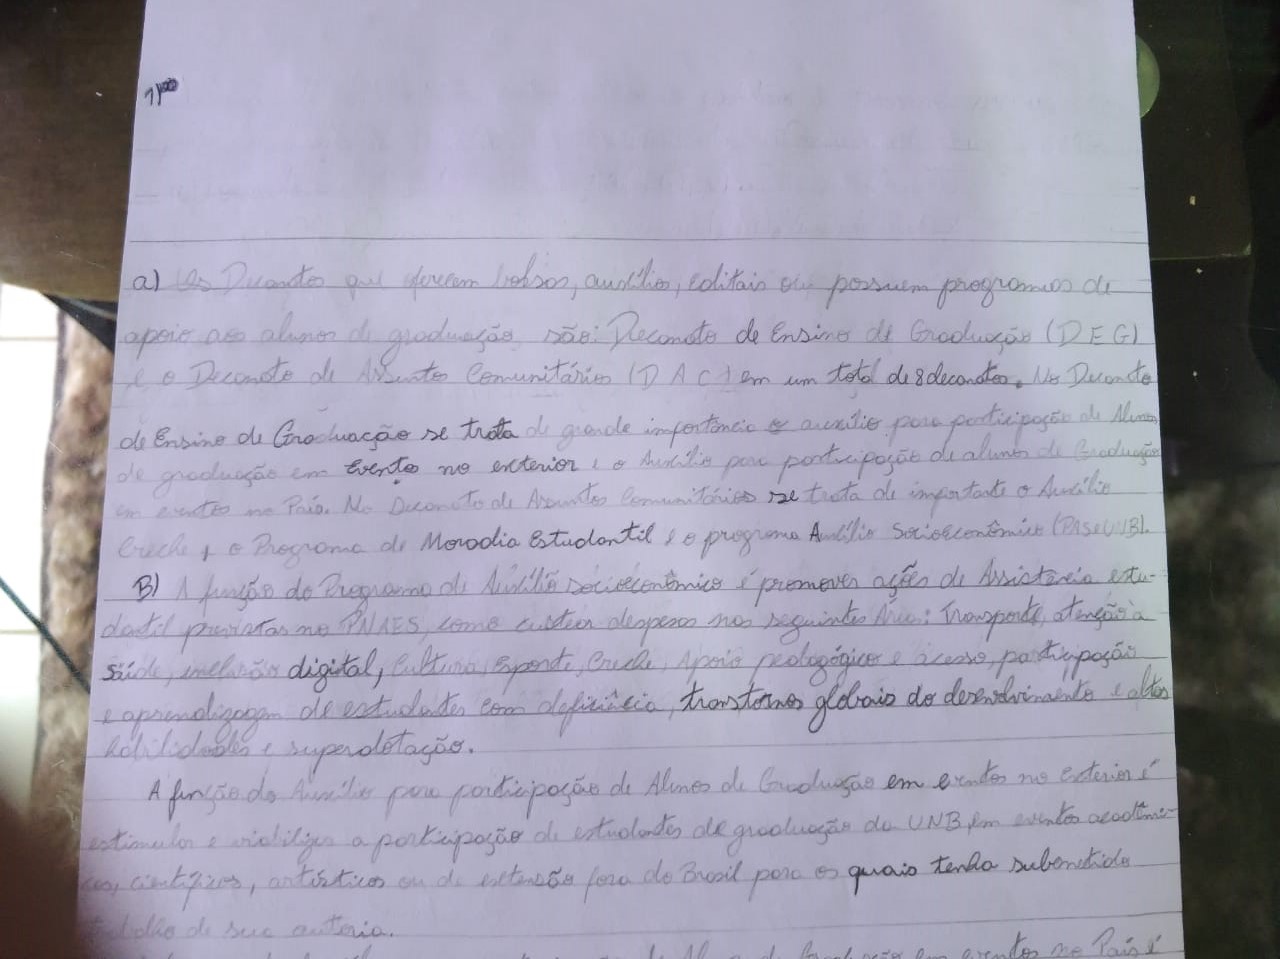 1)
a) Os Decanatos que oferecem bolsas, auxílio, editais ou possuem programas de
apoio aos alunos de graduação são: Decanato de Ensino de Graduação (DEG)
e o Decanato de Assuntos Comunitários (DAC) em um total de 8 decanatos. No Decanato
de Ensino de Graduação se trata de grande importância o auxílio para participação de Alunos
de graduação em Evento no exterior e o Auxílio para participação de alunos de Graduação
em eventos no País. No Decanato de Assuntos Comunitários se trata de importante o Auxílio
Creche, o Programa de Moradia Estudantil e o programa Auxílio Socioeconômico (PASEUNB).
B) A função do Programa de Auxílio socioeconômico é promover ações de Assistência estu-
dantil previstas no PNAES, como custear despesas nas seguintes Área: Transporte, atenção à
Saúde, inclusão digital, Cultura, Esporte, Creche, Apoio pedagógico e acesso, participação
e aprendizagem de estudantes com deficiência, transtornos globais do desenvolvimento e altas
habilidades e superdotação.
A função do Auxílio para participação de Alunos de Graduação em eventos no Exterior é
estimular e viabilizar a participação de estudantes de graduação da UNB, em eventos acadêmi-
cos, científicos, artísticos ou de extensão fora do Brasil para os quais tenha submetido
trabalho de sua autoria.
de Graduação em eventos no País é